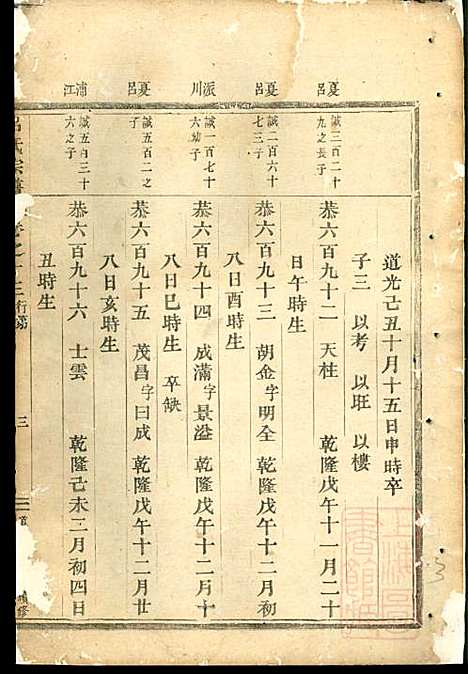 道光己丑十月十五日申時卒
子三 以考 以旺 以樓
夏呂
誠三百二十
九之長子
恭六百九十二 天柱 乾隆戊午十一月二十
日午時生
夏呂
誠二百六十
七三子
恭六百九十三 胡金字明全 乾隆戊午十二月初
八日酉時生
派川
誠一百七十
六幼子
恭六百九十四 成滿字景溢 乾隆戊午十二月初
八日巳時生 卒缺
夏呂
誠五百二之
子
恭六百九十五 茂昌字日成 乾隆戊午十二月廿
八日亥時生
浦江
誠五百三十
六之子
恭六百九十六 士雲 乾隆己未二月初四日
丑時生
呂氏宗譜 卷之十三 行第 三